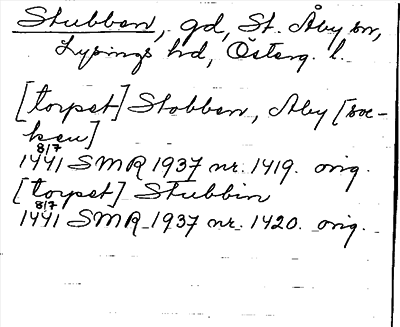 Stubben, gd, St. Åby sn,
Lysings hd, Österg. l.
[torpet] Stobben, Aby [soc-
ken]
1441 8/7 SMR 1937 nr. 1419. orig.
[torpet] Stubbin
1441 8/7 SMR 1937 nr. 1420. orig.